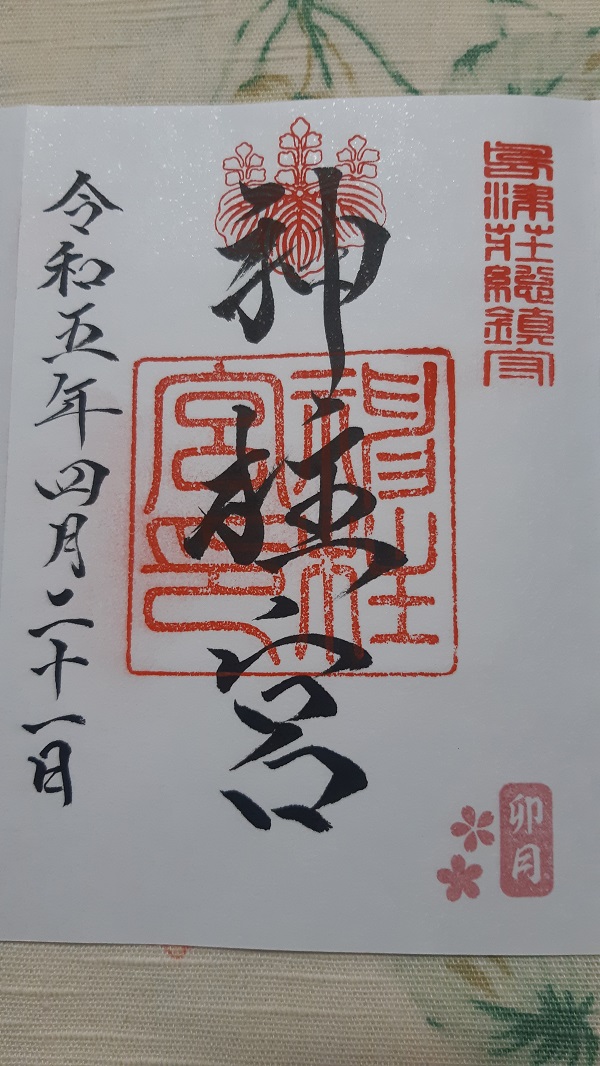 島津荘総鎮守
神柱宮
神柱宮印
令和五年四月二十一日
卯月